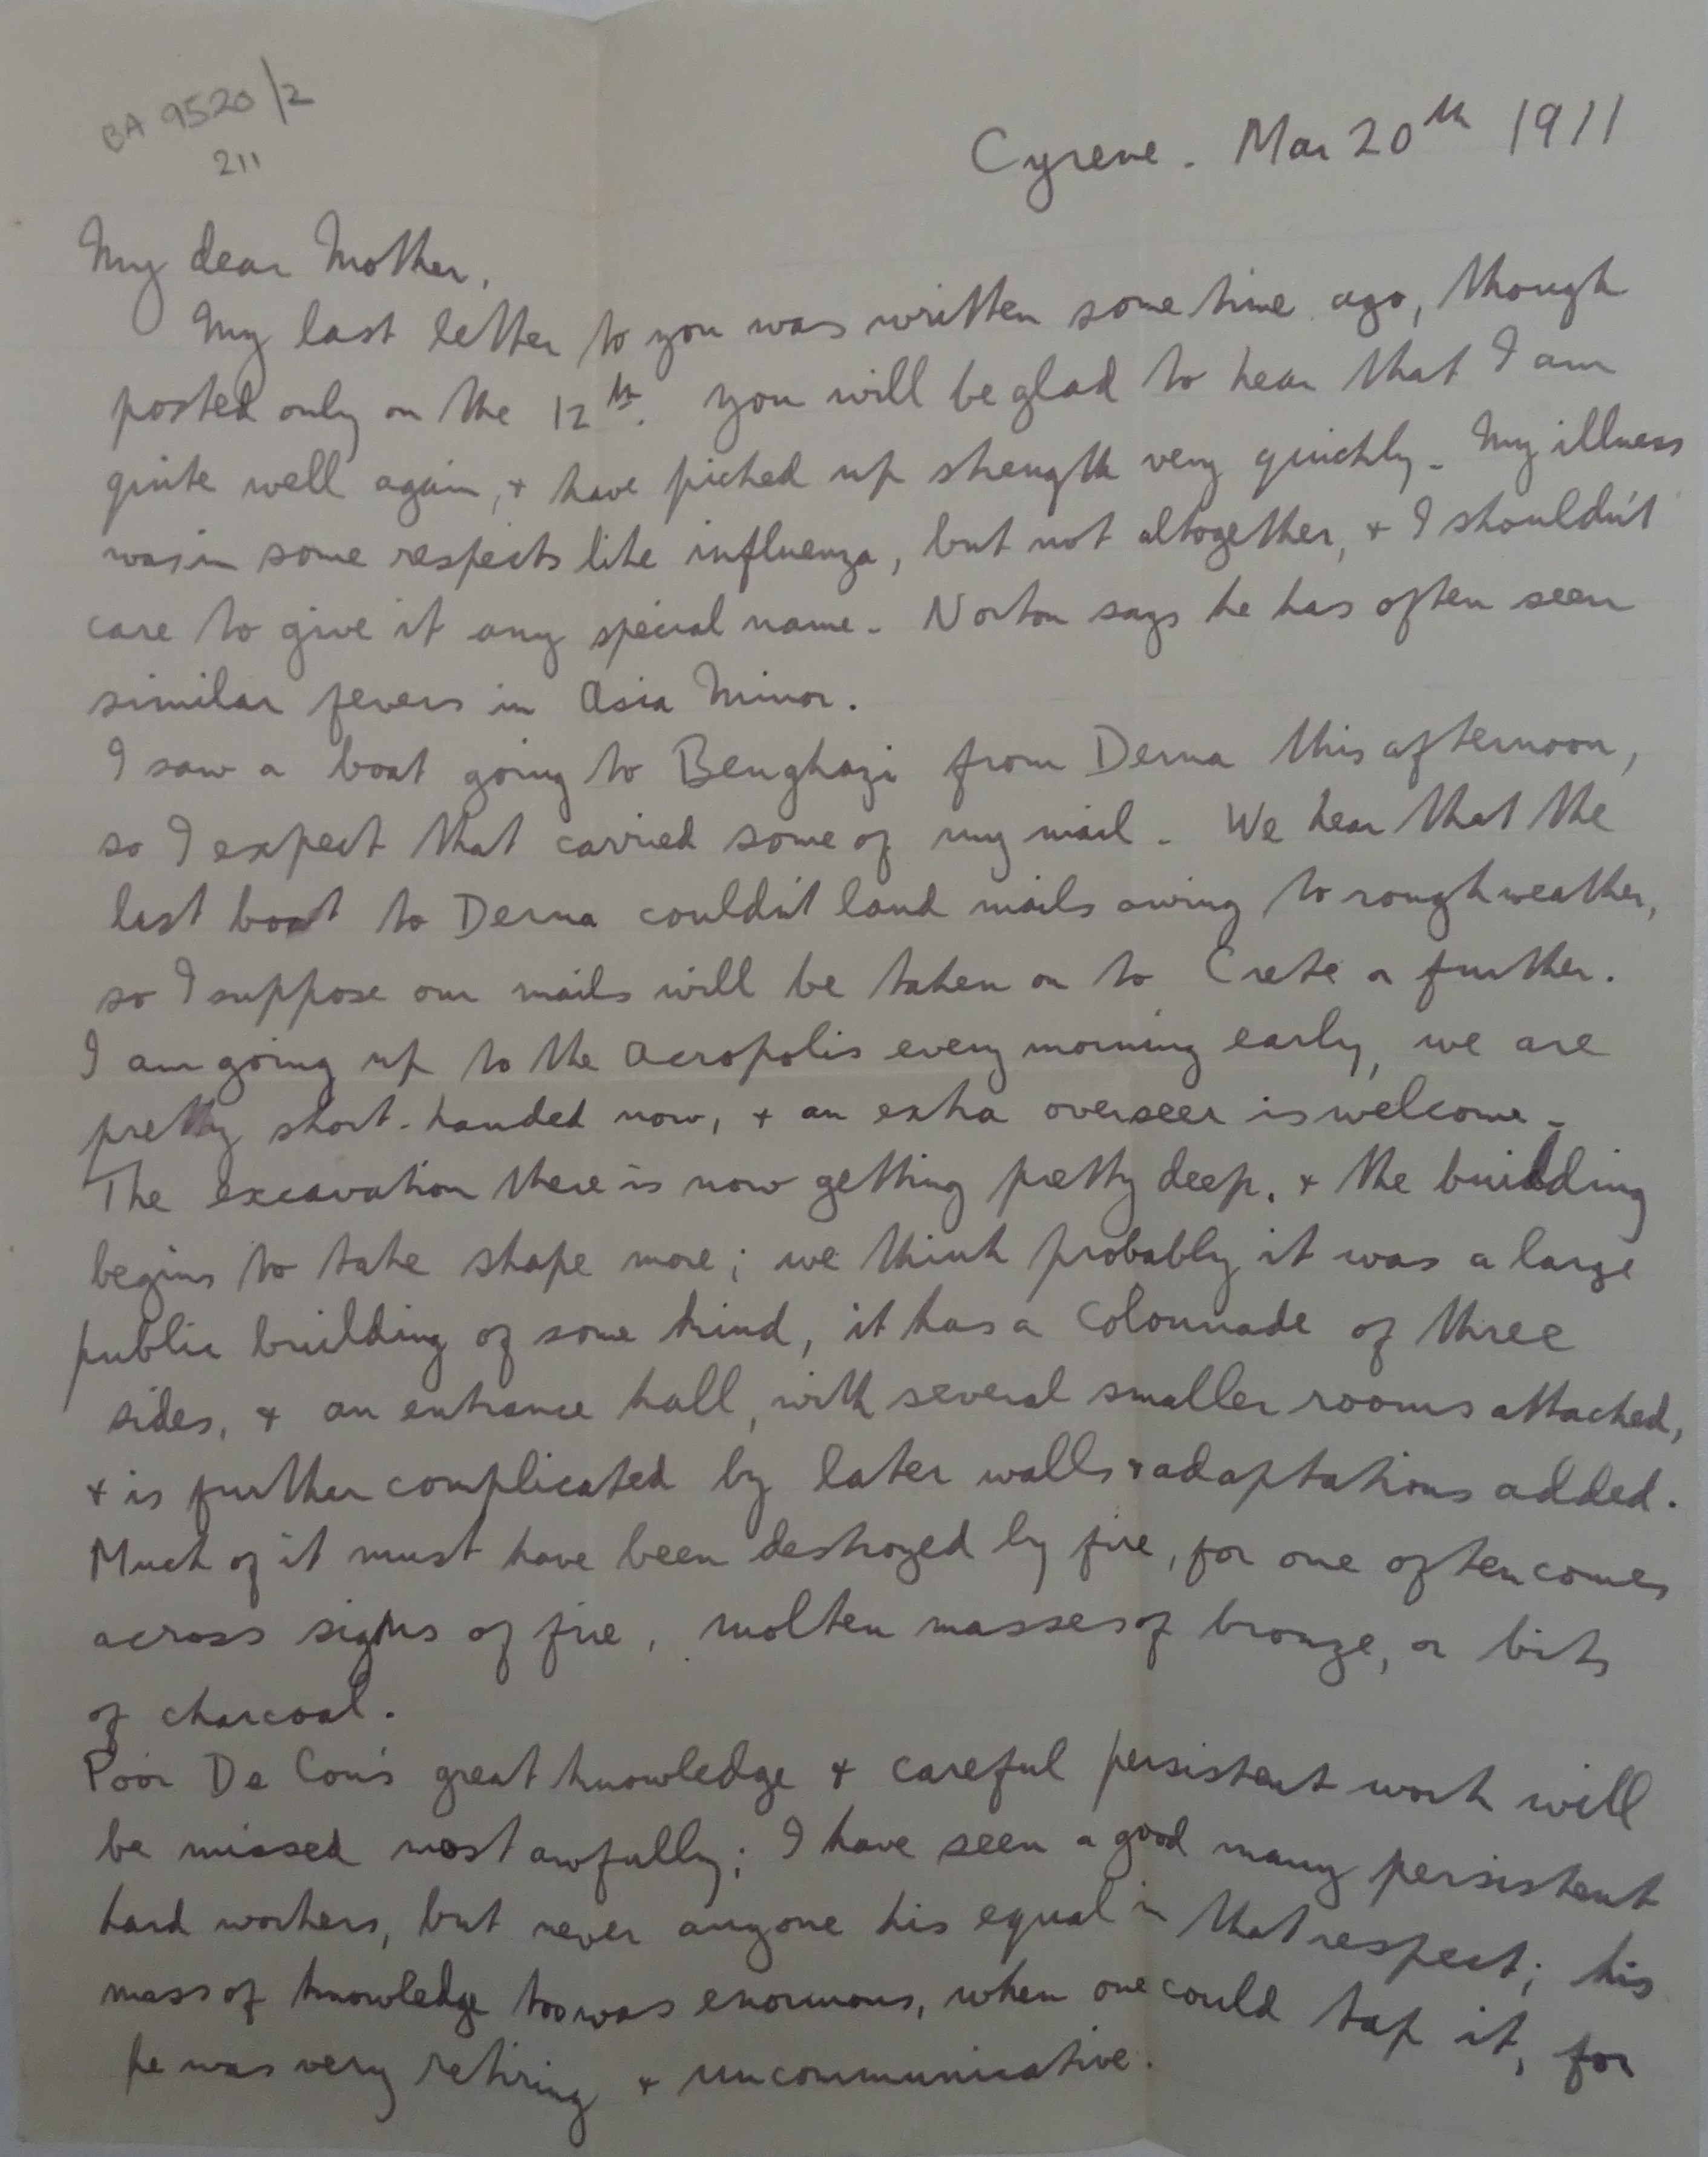 BA 9520/2
211
Cyrene. Mar 20th 1911
My dear Mother,
My last letter to you was written some time ago, though
posted only on the 12th. You will be glad to hear that I am
quite well again, + have picked up strength very quickly. My illness
was in some respects like influenza, but not altogether, + I shouldn't
care to give it any special name. Norton says he has often seen
similar fevers in Asia Minor.
I saw a boat going to Benghazi from Derna this afternoon,
so I expect that carried some of my mail. We hear that the
last boat to Derna couldn't land mails owing to rough weather,
so I suppose our mails will be taken on to Crete or further.
I am going up to the Acropolis every morning early, we are
pretty short-handed now, + an extra overseer is welcome.
The excavation there is now getting pretty deep, + the building
begins to take shape more; we think probably it was a large
public building of some kind, it has a colonnade of three
sides, + an entrance hall, with several smaller rooms attached,
+ is further complicated by later walls + adaptations added.
Much of it must have been destroyed by fire, for one often comes
across signs of fire, molten masses of bronze, or bits
of charcoal.
Poor De Cou's great knowledge + careful persistent work will
be missed most awfully; I have seen a good many persistent
hard workers, but never anyone his equal in that respect; his
mass of knowledge too was enormous, when one could tap it, for
he was very retiring + uncommunicative.